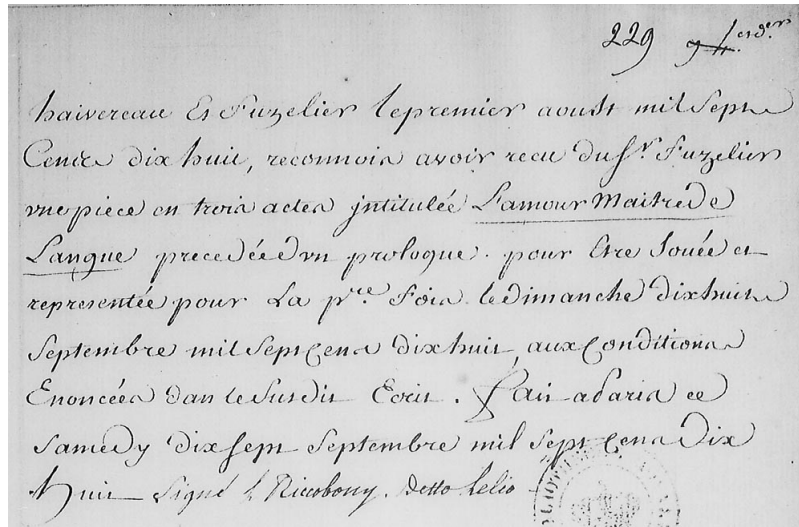 229
haivereau Et Fuzelier le premier aoust mil Sept
Cens dix huit, reconnois avoir recu du Sr. Fuzelier
vne piece en trois actes jntitulée L'amour Maitre de
Langue precedée d'vn prologue. pour Etre Jouée et
representée pour La pre. Fois le dimanche dix huit
Septembre mil Sept Cens dix huit, aux Conditions
Enoncées dan le Susdit Ecrit. Fait a Paris ce
Samedy dix Sept Septembre mil Sept Cens dix
huit Signé L Riccobony. detto Lelio